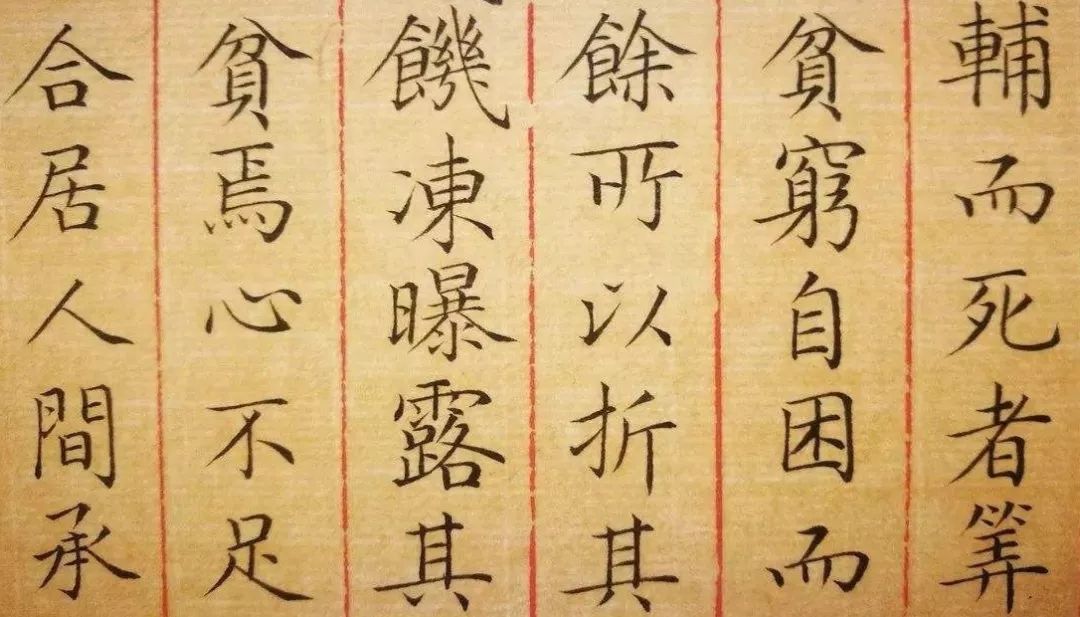 輔而死者筭
貧窮自困而
餘所以折其
饑凍曝露其
貧焉心不足
合居人間承